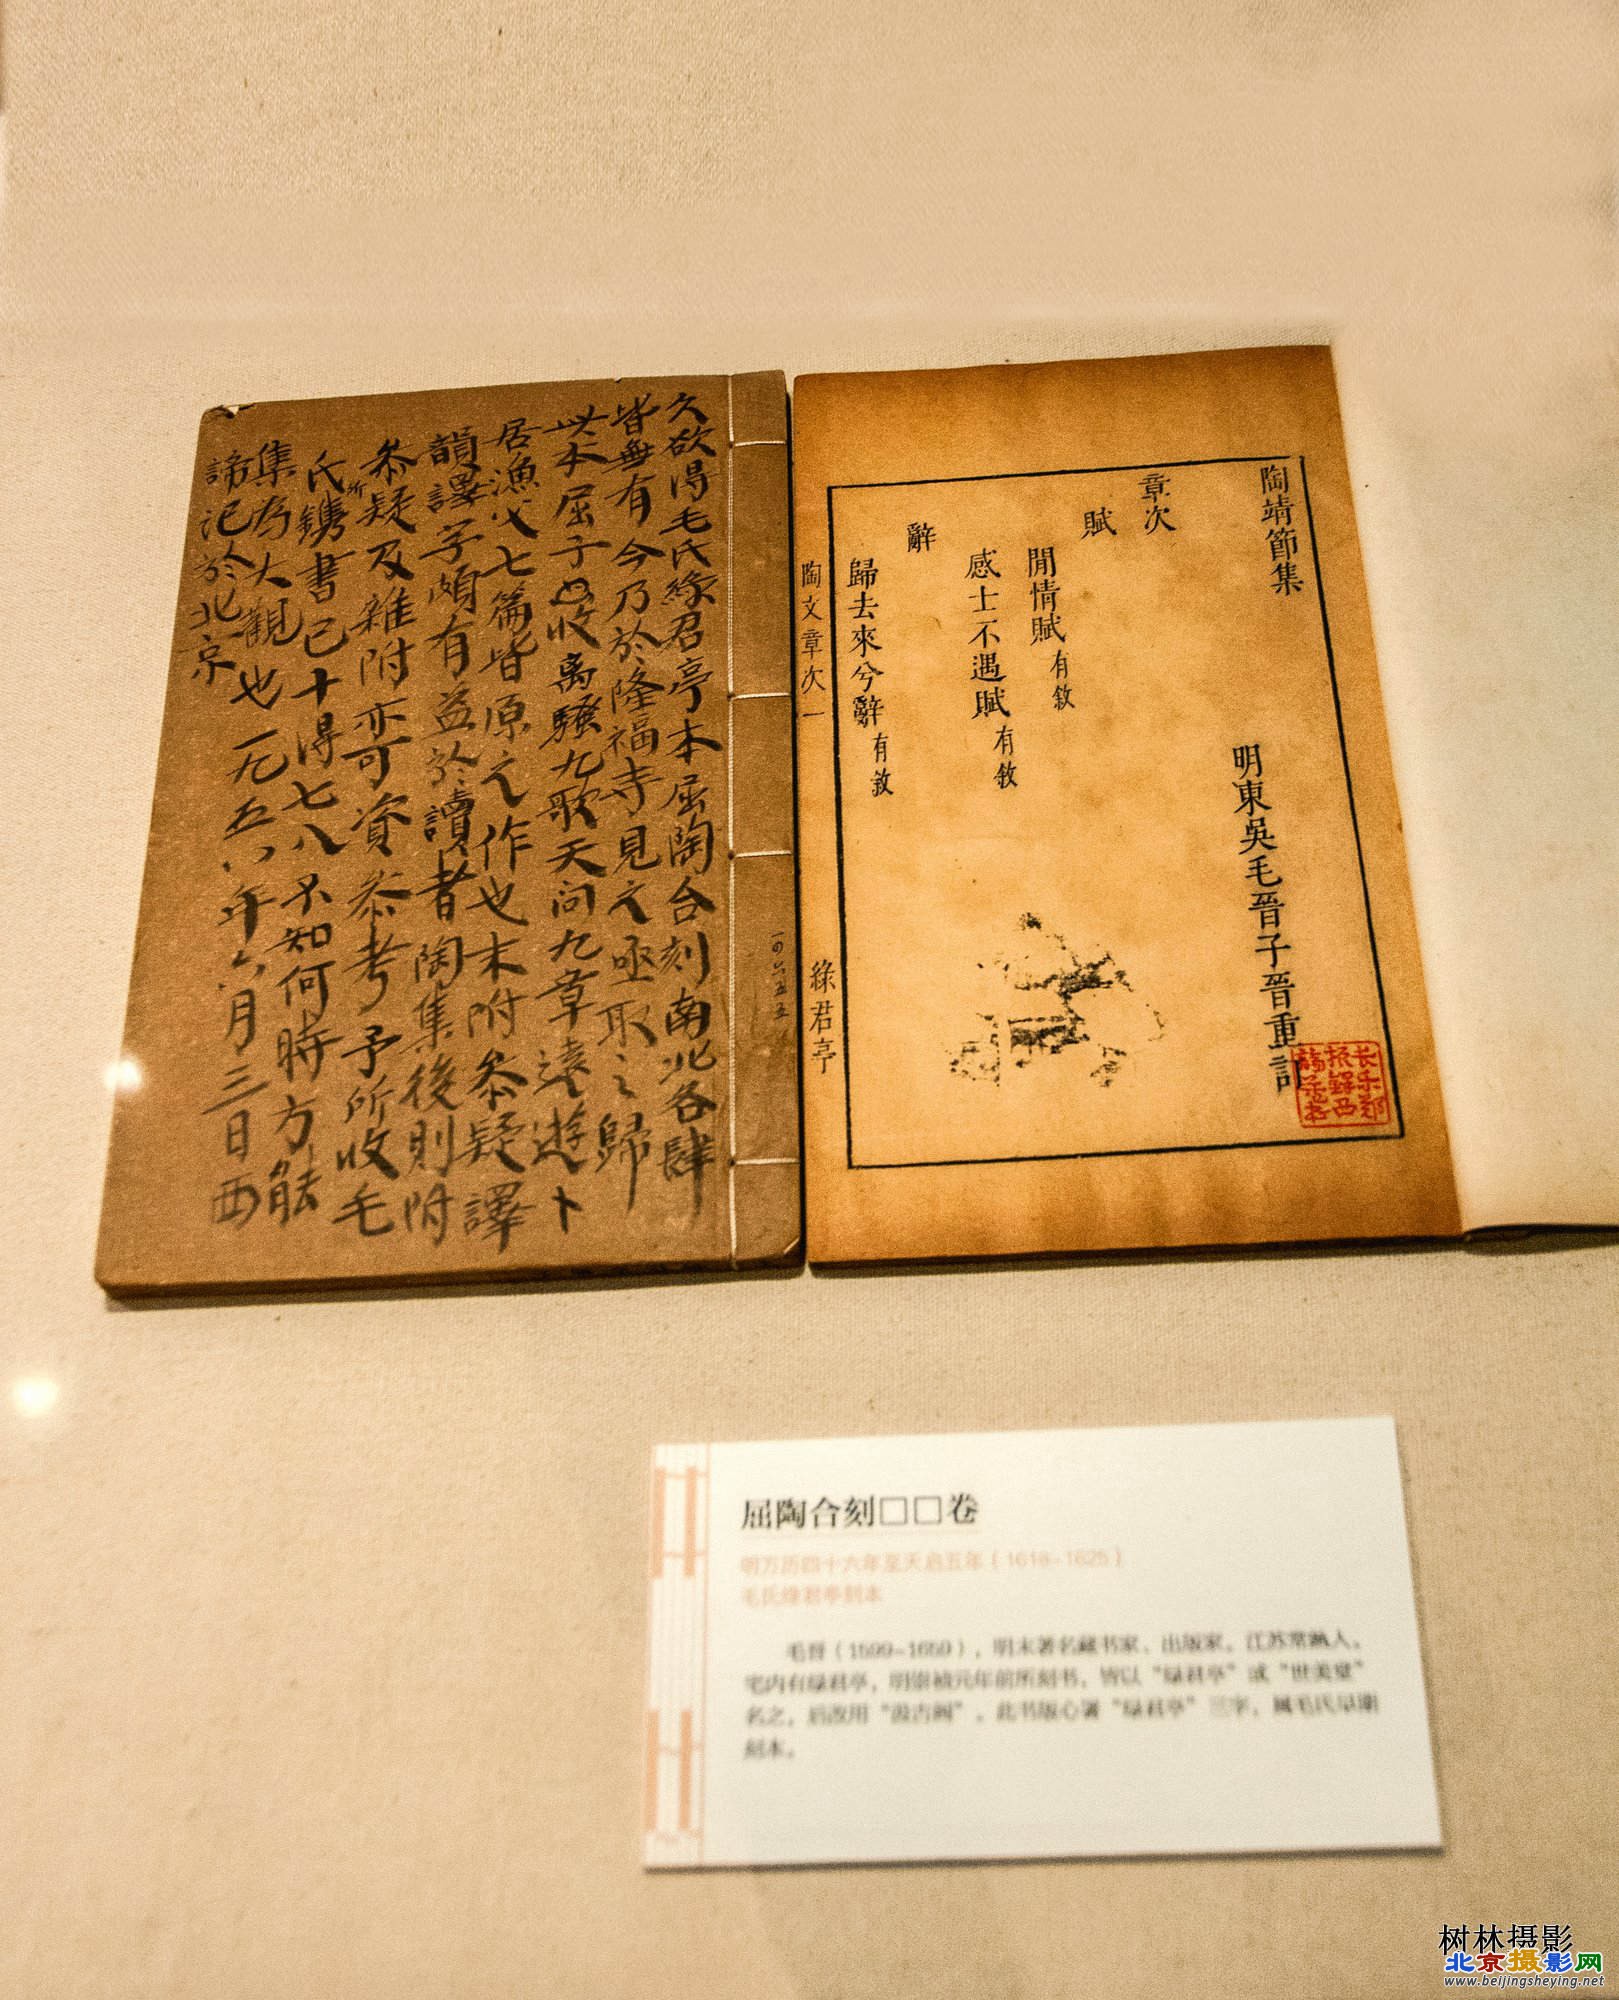 久欲得毛氏綠君亭本屈陶合刻南北各肆
皆無有今乃於隆福寺見之亟取之歸
此本屈子只收离騷九歌天问九章遠遊卜
居漁父七篇皆原之作也末附叅疑譯
韻譯字頗有益於讀者陶集後則附
叅疑及雜附亦可資叅考予所收毛
氏所鐫書已十得七八不知何時方能
集为大觀也一九五八年六月三日西
諦记於北京
一四六五五
陶靖節集
明東吳毛晉子晉重訂
章次
賦
閒情賦有敘
感士不遇賦有敘
辭
歸去來兮辭有敘
陶文章次一
綠君亭
长乐郑
振铎西
谛藏书
屈陶合刻□□卷
明万历四十六年至天启五年（1618-1625）
毛氏绿君亭刻本
毛晋（1599-1659），明末著名藏书家、出版家。江苏常熟人。
宅内有绿君亭，明崇祯元年前所刻书，皆以“绿君亭”或“世美堂”
名之，后改用“汲古阁”。此书版心署“绿君亭”三字，属毛氏早期
刻本。
树林摄影
北京摄影网
www.beijingsheying.net